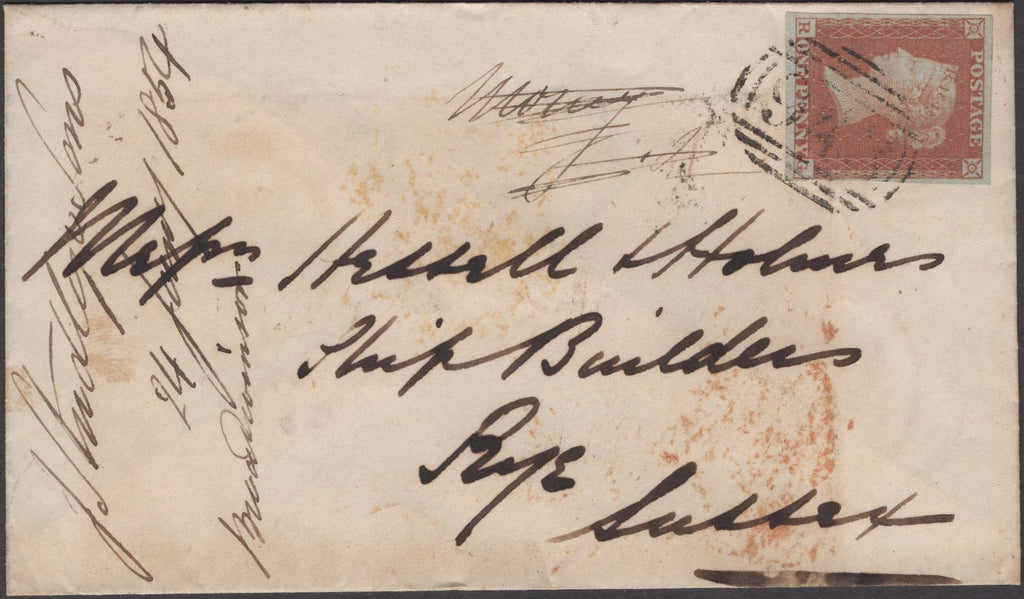 POSTAGE
R ONE PENNY E
Messrs Hessell & Holmes
Ship Builders
Rye
Sussex
& Sons
24 1854